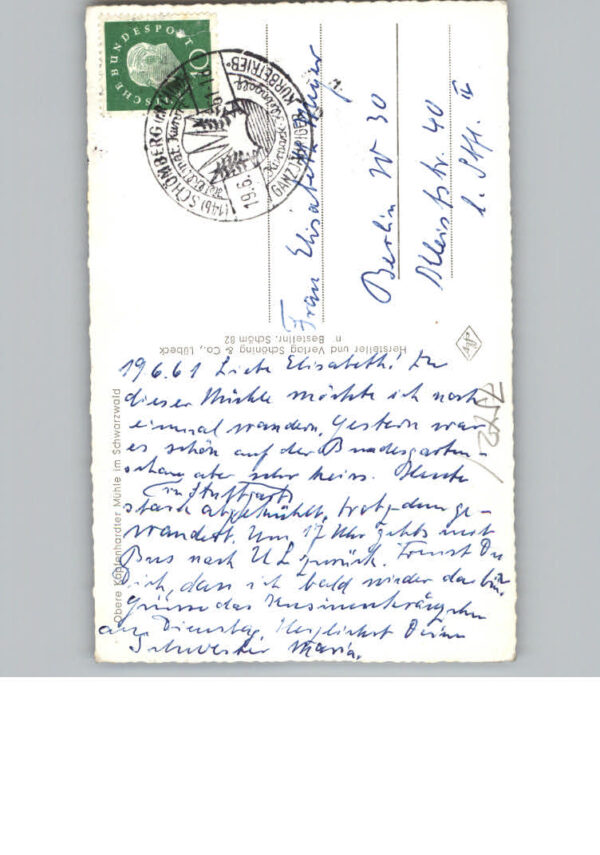 DEUTSCHE BUNDESPOST
10
(14b) SCHÖMBERG
GANZJÄHRIGER KURBETRIEB
19.6.
Frau Elisabeth
Berlin W 30
Kleiststr. 40
Hersteller und Verlag Schöning & Co., Lübeck
Bestellnr. Schöm 82
Obere Kapfenhardter Mühle im Schwarzwald
19.6.61 Liebe Elisabeth! Zu
dieser Mühle möchte ich noch
einmal wandern. Gestern war
es schön auf der Bundesgarten-
schau aber sehr heiss. Heute
in Stuttgart
stark abgekühlt, trotzdem ge-
wandert. Um 17 Uhr gehts mit
Bus nach UL zurück. Freust Du
Dich, dass ich bald wieder da bin.
Grüsse das Kusinenkränzchen
am Dienstag. Herzlichst Deine
Schwester Maria.